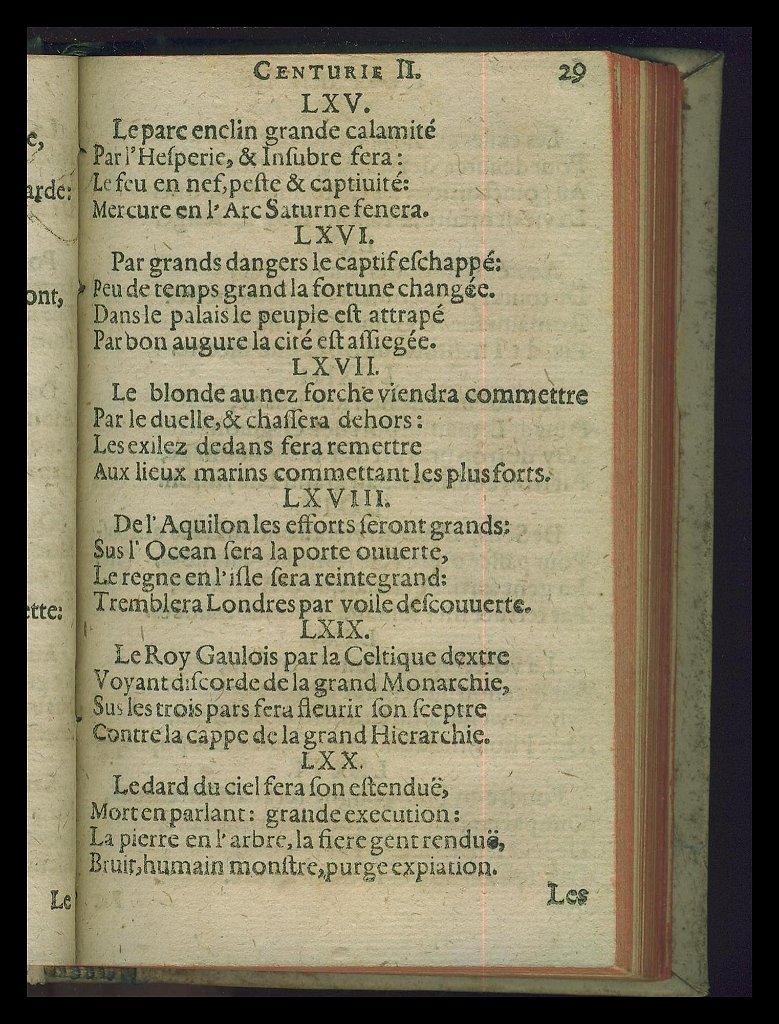 e,
arde:
ont,
ette:
Le
CENTURIE II. 29
LXV.
Le parc enclin grande calamité
Par l'Hesperie, & Insubre fera:
Le feu en nef, peste & captiuité:
Mercure en l'Arc Saturne fenera.
LXVI.
Par grands dangers le captif eschappé:
Peu de temps grand la fortune changée.
Dans le palais le peuple est attrapé
Par bon augure la cité est assiegée.
LXVII.
Le blonde au nez forche viendra commettre
Par le duelle, & chassera dehors:
Les exilez dedans fera remettre
Aux lieux marins commettant les plus forts.
LXVIII.
De l'Aquilon les efforts seront grands:
Sus l'Ocean sera la porte ouuerte,
Le regne en l'isle sera reintegrand:
Tremblera Londres par voile descouuerte.
LXIX.
Le Roy Gaulois par la Celtique dextre
Voyant discorde de la grand Monarchie,
Sus les trois pars fera fleurir son sceptre
Contre la cappe de la grand Hierarchie.
LXX.
Le dard du ciel fera son estenduë,
Mort en parlant: grande execution:
La pierre en l'arbre, la fiere gent renduë,
Bruit, humain monstre, purge expiation.
Les